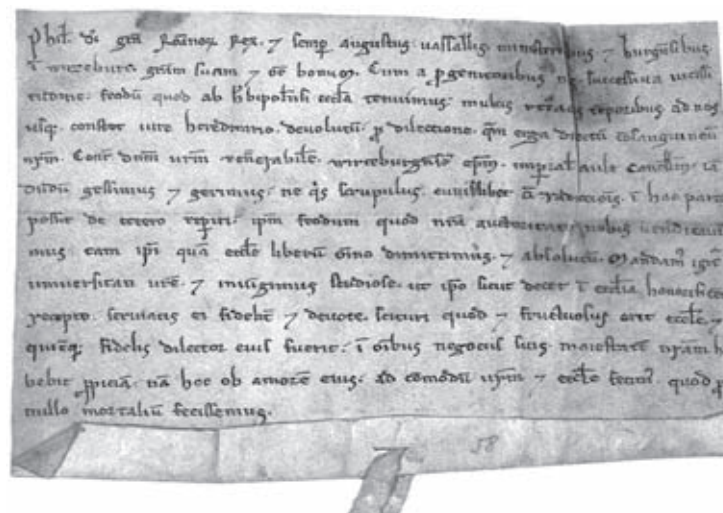 Phil. di gra Romanoz Rex. ⁊ semp augustus. uassallis ministerialibus ⁊ burgensibus
i wirceburc. gram suam ⁊ oē bonum. Cum a pgenitoribus nris successiua uicissi
tudine. feodū quod ab herbipolensi eccla tenuimus. multis retroactis temporibus ad nos
usq. constet iure hereditario. deuolutū. p dilectione. qm erga dilectū consanguineū
nrm. dnm urm uenerabile. wirceburgense epm. imperial aule Cancell
gessimus ⁊ gerimus. ne qs scrupulus. cuiuslibet i hac par
possit de cetero reperiri. ipm feodum quod nra auctoritate. nobis uendicaui
mus. tam ipi quā eccle liberū omo dimittimus. ⁊ absolutū. Mandam igit
uniuersitati ure. ⁊ iniungimus studiose. ut ipo sicut decet i ecclia honorifice
recepto. seruiatis ei fidelit ⁊ deuote. scituri quod ⁊ fructuosus erit eccle. ⁊
quicq fidelis dilector eius fuerit. i oibus negociis suis. maiestatē nram h
bebit ppiciā. nā hoc ob amorē eius. ad comodū urm ⁊ eccle fecim. quod p
nullo mortaliū fecissemus.
58